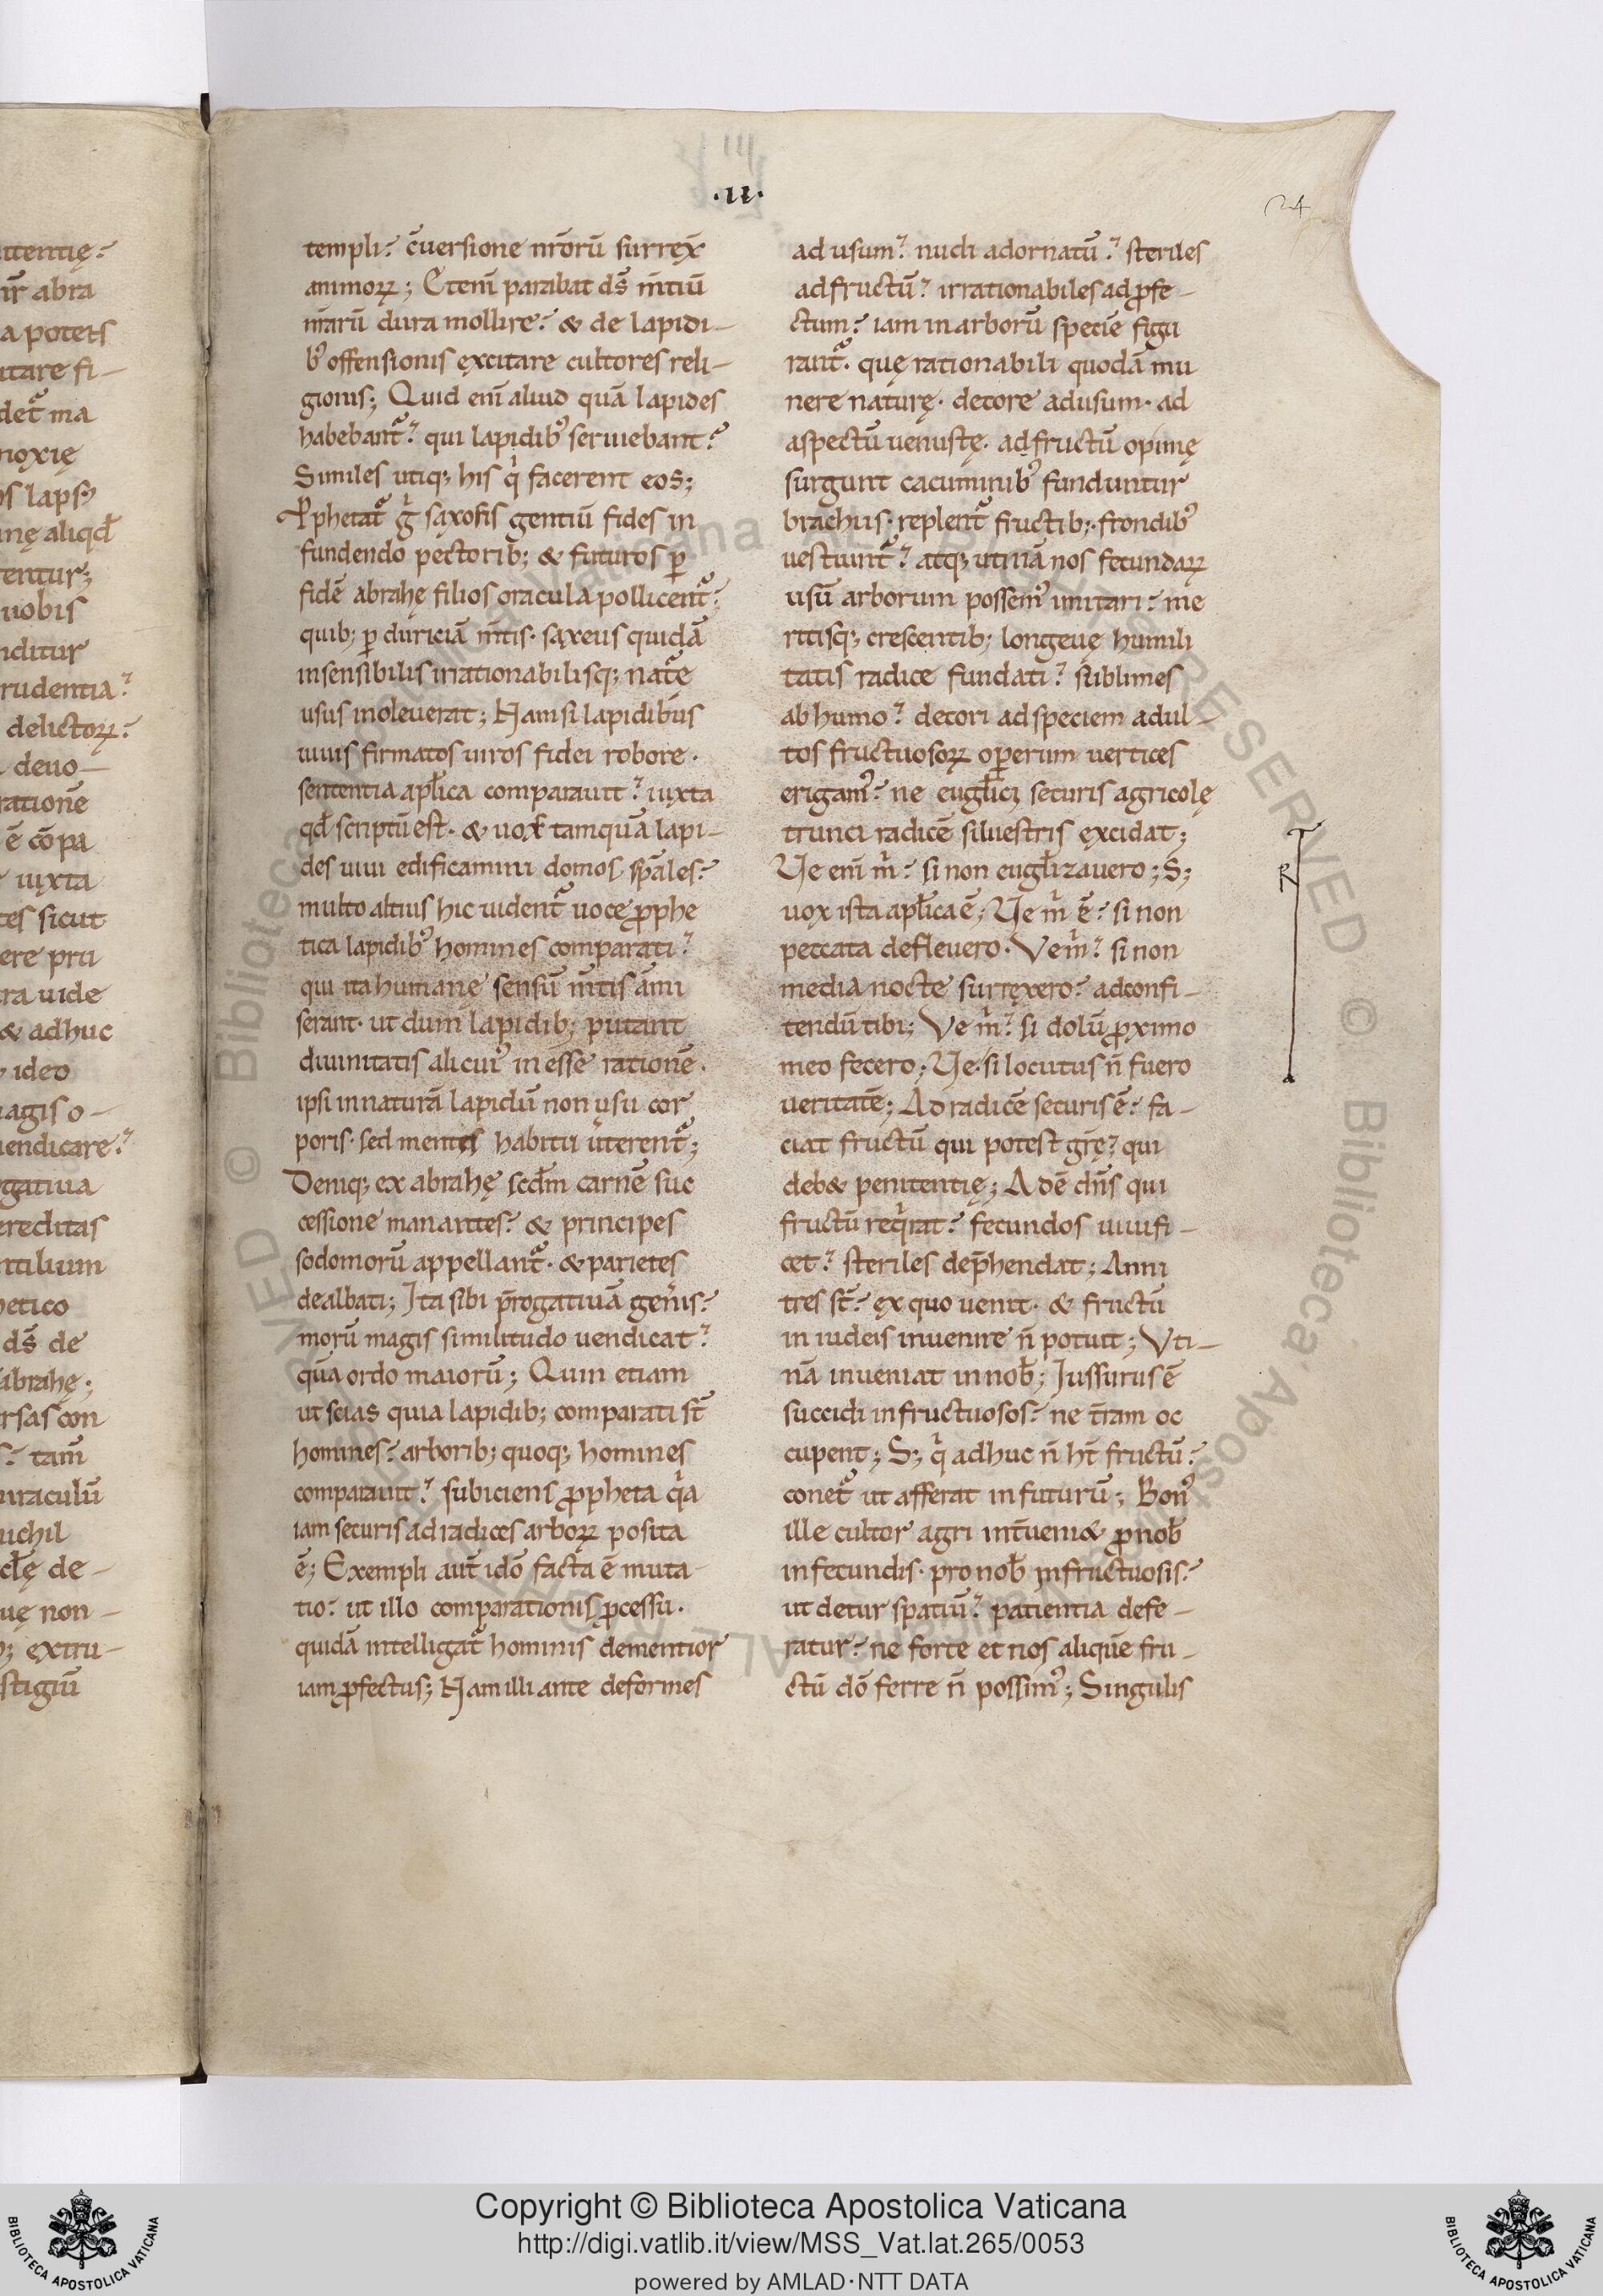 .II.
24
templi? c̄uersione nr̄orū surrex̄
animoꝝ; Eteni̅ parabat ds̄ m̄tiū
nr̄arū dura mollire? & de lapidi-
bꝰ offensionis ęxcitare cultores reli-
gionis; Quid eni̅ aliud quā lapides
habebant᷑? qui lapidibꝰ seruiebant?
Similes utiq; his qͥ facerent eos;
Pphetat᷑ gͥ sąxosis gentiū fides in
fundendo pectorib; & futuros ꝑ
fidē abrahę filios oracula pollicent᷑;
quib; ꝑ duriciā m̄tis· sąxeus quidā
insensibilis irrationabilisq; nat᷑e
usus inoleuerat; Nam si lapidibus
uiuis firmatos uiros fidei robore·
sententia apl̄ica comparauit? iuxta
qd̄ scriptū est· & uox̄ tamquā lapi-
des uiui edificamini domos sp̄ales?
multo altius hic uident᷑ uoce ꝓphe
tica lapidibꝰ homines comparati?
qui ita humane sensū m̄tis āmi
serant· ut dum lapidib; putant
diuinitatis alicuiꝰ in esse rationē·
ipsi in naturā lapidū non usu cor
poris· sed mentis habitu ūterent᷑;
Deniq; ex abrahę scd̄m carnē suc
cessione manantes? & principes
sodomorū appellant᷑· & parietes
dealbati; Ita sibi p̄rogatiuā gen̄is?
morū magis similitudo uendicat?
quā ordo maiorū; Quin etiam
ut scias quia lapidib; comparati st̄
homines? arborib; quoq; homines
comparauit? subiciens ꝓpheta qͥa
iam securis ad radices arboꝝ posita
ē; Exempli aut̄ idō facta ē muta-
tio? ut illo comparationis ꝓcessu·
quidā intelligat᷑ hominis dementior
iam ꝓfectus; Nam illi ante deformes
ad usum? nudi adornatū? steriles
ad fructū? irrationabiles ad ꝓfe-
ctum? iam in arborū speciē figu
rant᷑· quę rationabili quodā mu
nere naturę· decore ad usum· ad
aspectū uenustę· ad fructū opimę
surgunt cacuminibꝰ funduntur
brachiis· replent᷑ fructib;· frondibꝰ
uestiunt᷑? atq; utinā nos fecundaꝝ
usū arborum possemꝰ imitari? me
ritisq; crescentib; longeuę humili
tatis radice fundati? sublimes
ab humo? decori ad speciem adul-
tos fructuosoꝝ oꝑum uertices
erigamꝰ? ne eugl̄icį securis agricolę
trunci radicē siluestris ęxcidat;
Ve eni̅ mͥ? si non eugl̄izauero; S;
uox ista apl̄ica ē; Ve mͥ ē? si non
peccata defleuero· Ve mͥ? si non
media nocte surręxero? ad confi-
tendū tibi; Ve mͥ? si dolū ꝓximo
meo fecero; Ve· si locutus n̄ fuero
ueritatē; Ad radicē securis ē? fa-
ciat fructū qui potest gr̄ę? qui
deb& penitentię; Adē dn̄s qui
fructū reqͥrat? fecundos uiuifi-
cet? steriles dep̄hendat; Anni
tres st̄? ęx quo uenit· & fructū
in iudeis inuenire n̄ potuit; Vti-
nā inueniat in nob̄; Iussurus ē
succidi infructuosos? ne t̄ram oc
cupent; S; qͥ adhuc n̄ ht̄ fructū?
conet᷑ ut afferat in futurū; Bonꝰ
ille cultor agri int̄ueni& ꝓ nob̄
infecundis· pro nob̄ infructuosis?
ut detur spatiū? patientia defe-
ratur? ne forte et nos aliquē fru-
ctū dō ferre n̄ possimꝰ; Singulis
Copyright © Biblioteca Apostolica Vaticana
http://digi.vatlib.it/view/MSS_Vat.lat.265/0053
powered by AMLAD·NTT DATA